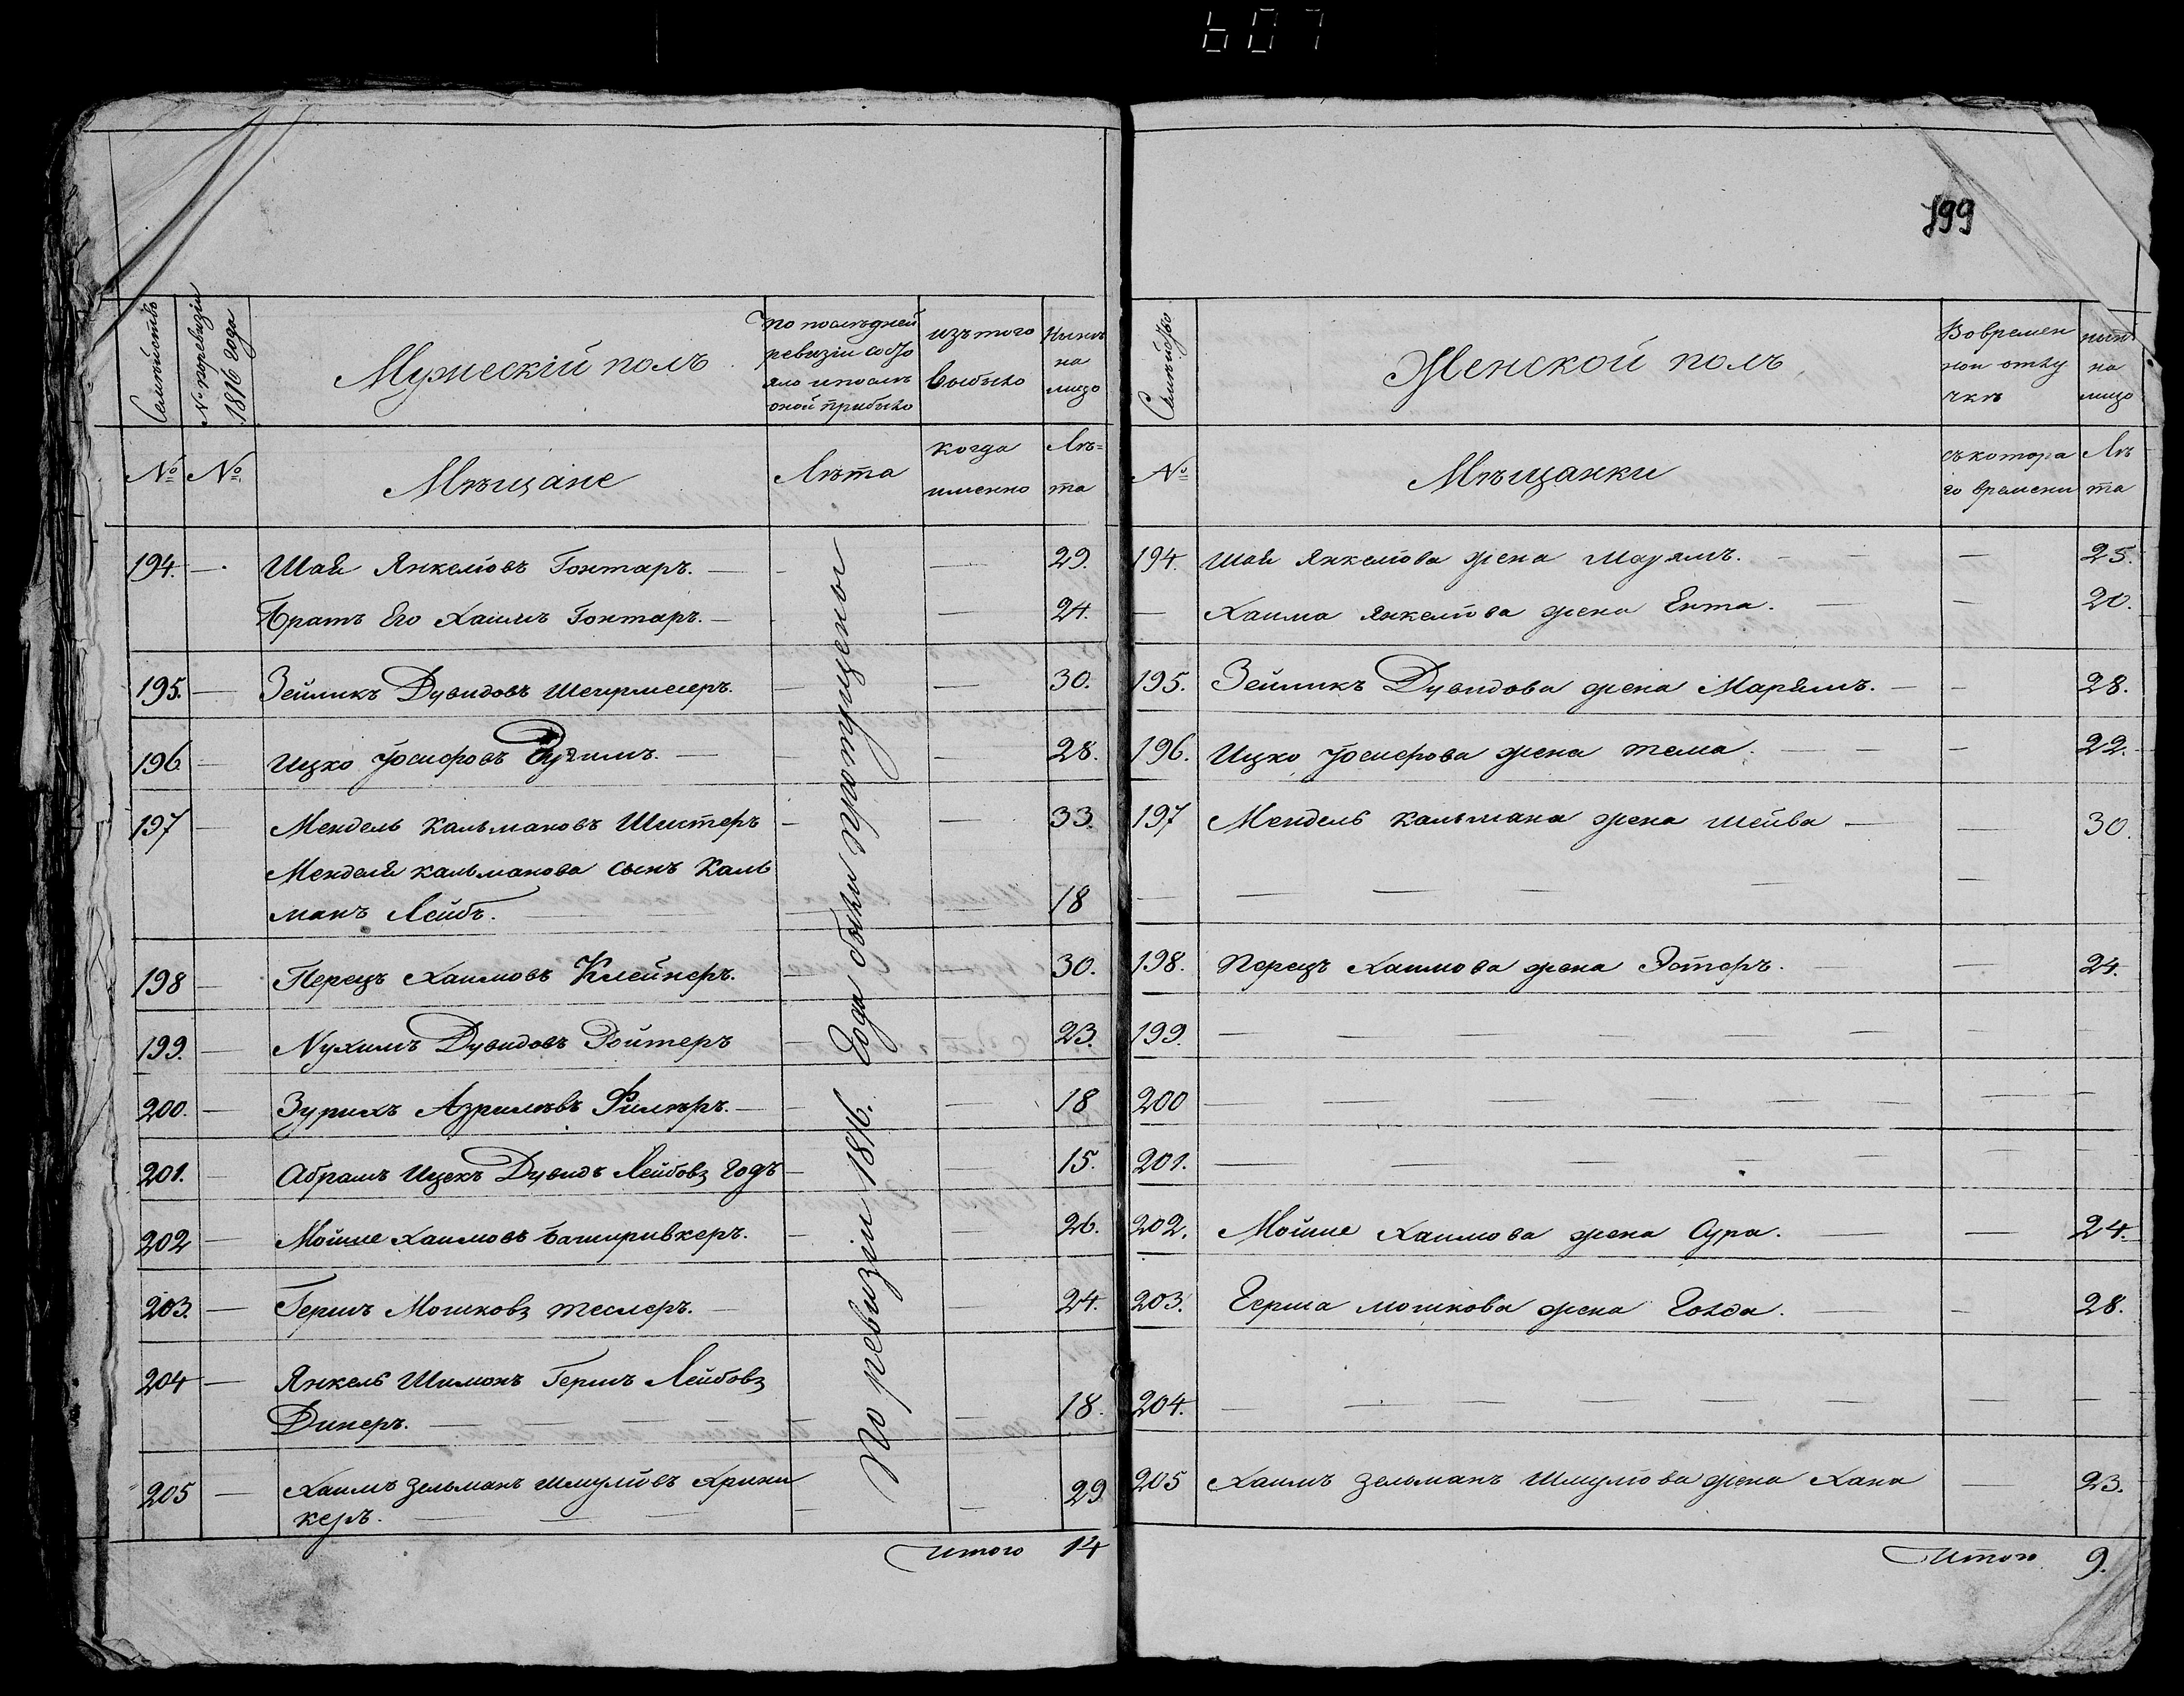 607
199
Семействъ
№ по ревизіи 1816 года
Мужескій полъ
по послѣдней ревизіи состояло и послѣ оной прибыло
изъ того выбыло
Нынѣ на лицо
№ №
Мѣщане
Лѣта
когда именно
Лѣ=та
194. Шая Янкелiовъ Гонтаръ. 29.
Братъ Его Хаимъ Гонтаръ. 24.
195. Зейликъ Дувидовъ 30.
196 Ицко Іосифовъ 28.
197 Мендель Кальмановъ Шистеръ 33.
Менделя кальманова сынъ Каль
манъ Лейбъ. 18
198 Перецъ Хаимовъ Клейнеръ. 30.
199. Нухимъ Дувидовъ Ройтеръ 23.
200. Зурихъ Азрилевъ 18
201. Абрамъ Ицекъ Дувидъ Лейбовъ Годъ 15.
202 Мойше Хаимовъ Баширивкеръ. 26.
203. Гершъ Мошковъ теслеръ. 24.
204 Янкель Шимонъ Гершъ Лейбовъ
Динеръ. 18.
205 Хаимъ Зельманъ Шмулiовъ Крини
керъ. 29
По ревизіи 1816. Года были пропущены
Итого 14
Семѣйство
Женской полъ
Во временной отлучкѣ
нынѣ на лицо
№
Мѣщанки
съ котораго времени
Лѣта
194. Шая Янкелiова жена Марямъ. 25.
Хаима Янкелiова жена Ента. 20.
195. Зейликъ Дувидова жена Марямъ. 28.
196. Ицко Іосифова жена тема. 22.
197 Мендель Кальмана жена шейва 30.
198. Перецъ Хаимова жена Эстеръ. 24.
199.
200
201.
202. Мойше Хаимова жена Сура. 24.
203. Герша мошкова жена Голда. 28.
204.
205 Хаимъ Зельманъ Шмулiова жена Хана 23.
Итого 9.